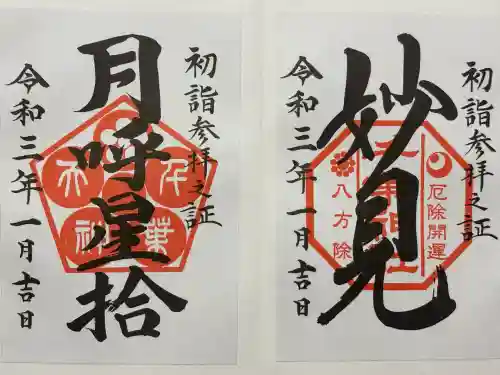 初詣参拝之証
妙見
厄除開運
八方除
令和三年一月吉日
初詣参拝之証
月呼星拾
令和三年一月吉日